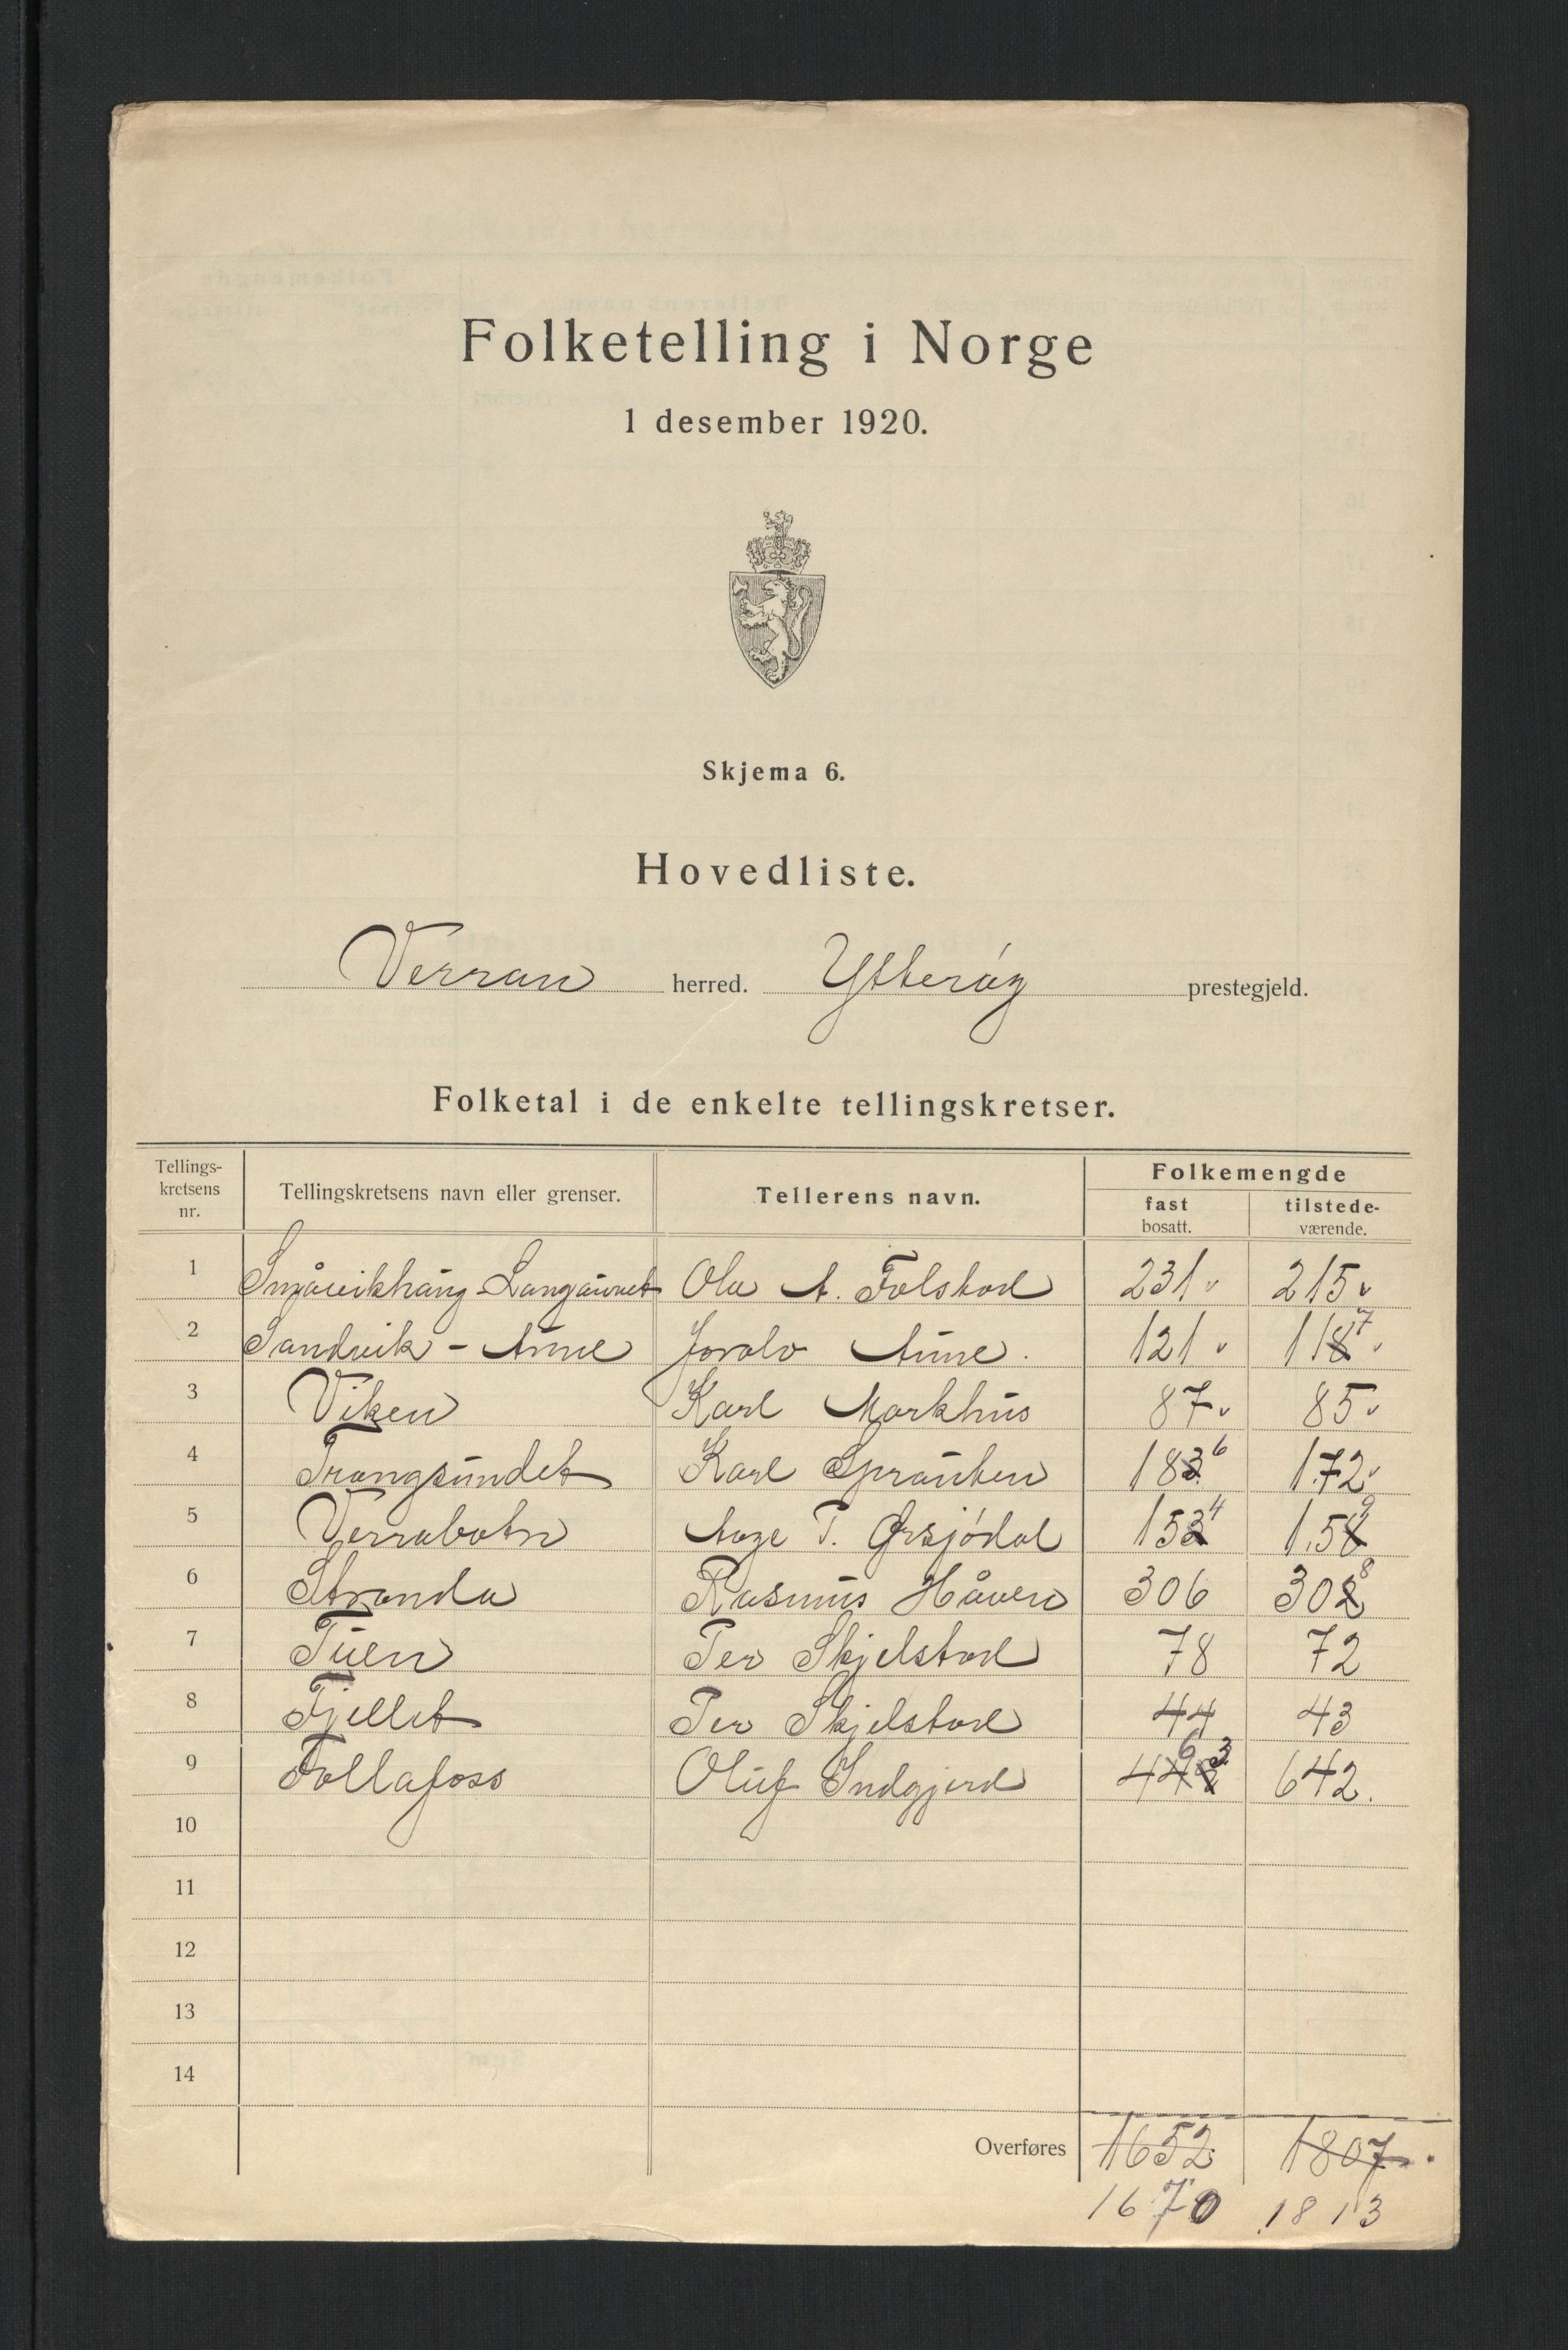 Folketelling i Norge
1 desember 1920.
Skjema 6.
Hovedliste.
Verran herred. Ytterøy prestegjeld.
Folketal i de enkelte tellingskretser.
Tellings-kretsens nr. Tellingskretsens navn eller grenser. Tellerens navn. Folkemengde
fast bosatt. tilstede-værende.
1 Småvikhaug-Langaunet Ola A. Folstad 231 215
2 Sandvik - Aune Jorolv Aune. 121 118 7
3 Viken Karl Markhus 87 85
4 Trangsundet Karl Sprauten 183 6 172
5 Verrabotn Aage T. Ørsjødal 153 4 158 9
6 Stranda Rasmus Håven 306 302 8
7 Tuen Per Skjelstad 78 72
8 Fjellet Per Skjelstad 44 43
9 Follafoss Oluf Indgjerd 6 3 642.
10
11
12
13
14
Overføres 1652 1807
1670 1813